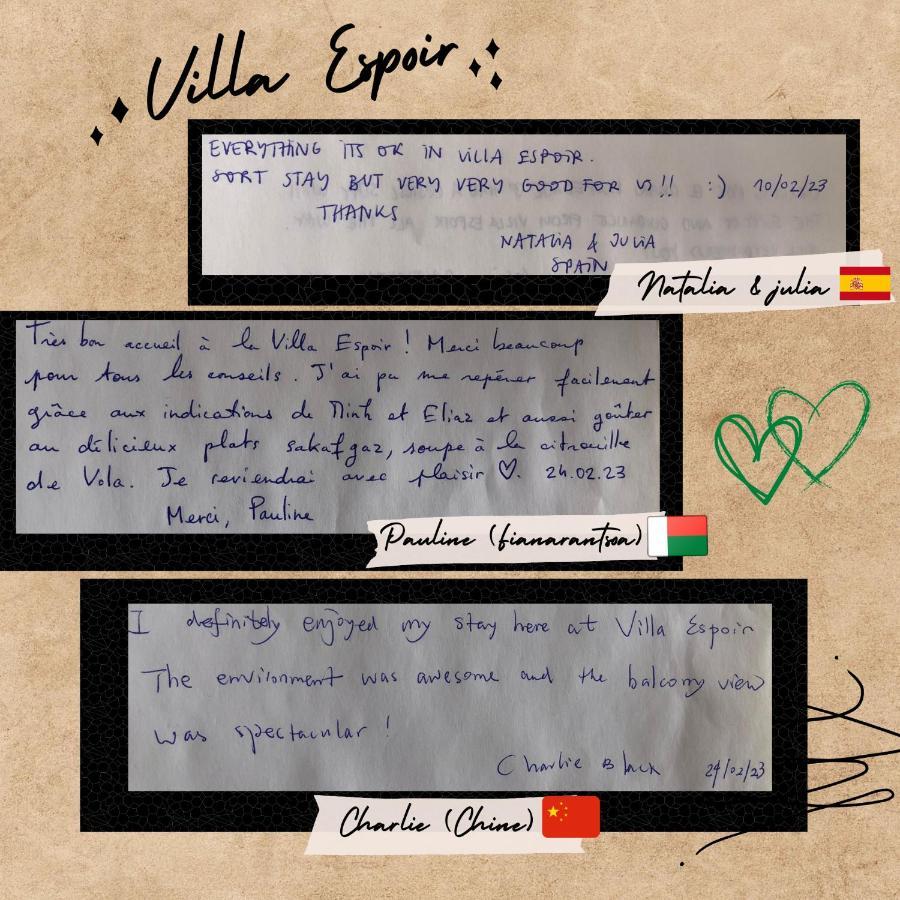 Villa Espoir
EVERYTHING ITS OK IN VILLA ESPOIR.
SORT STAY BUT VERY VERY GOOD FOR US!! :) 10/02/23
THANKS
NATALIA & JULIA
SPAIN
Natalia & julia
Très bon accueil à la Villa Espoir ! Merci beaucoup
pour tous les conseils. J'ai pu me repérer facilement
grâce aux indications de Ninh et Eliaz et aussi goûter
au délicieux plats sakafgaz, soupe à la citrouille
de Vola. Je reviendrai avec plaisir ♡. 24.02.23
Merci, Pauline
Pauline (fianarantsoa)
I definitely enjoyed my stay here at Villa Espoir
The environment was awesome and the balcony view
was spectacular !
Charlie Black 24/02/23
Charlie (Chine)